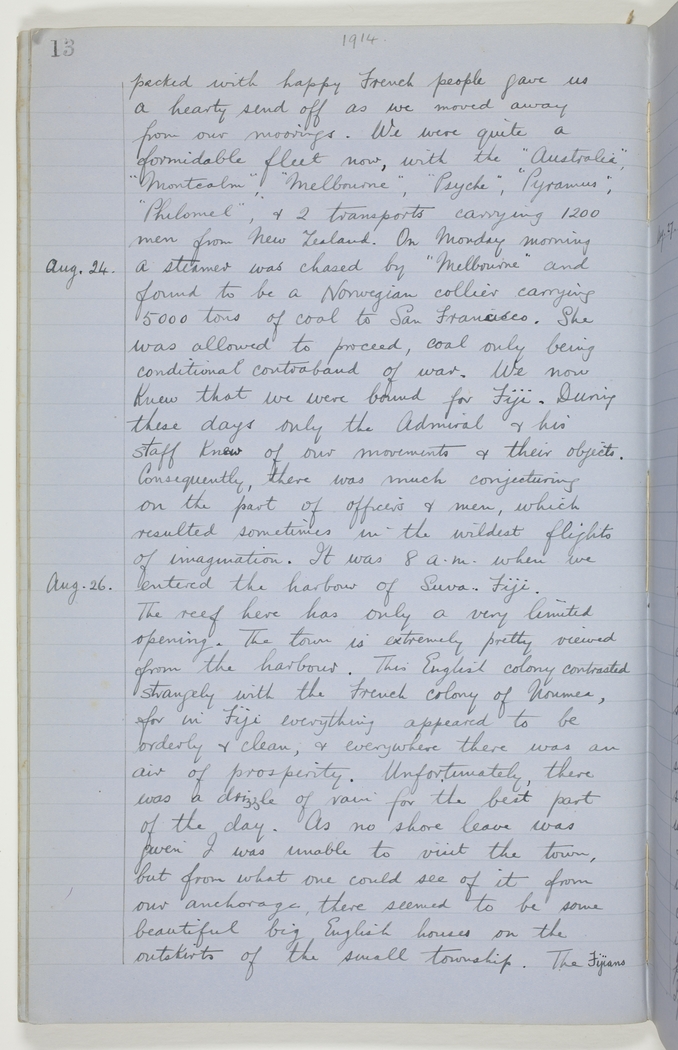 13
1914.
packed with happy French people gave us
a hearty send off as we moved away
from our moorings. We were quite a
formidable fleet now, with the "Australia",
"Montcalm", "Melbourne", "Psyche", "Pyramus",
"Philomel", & 2 transports carrying 1200
men from New Zealand. On Monday morning
Aug. 24. a steamer was chased by "Melbourne" and
found to be a Norwegian collier carrying
5000 tons of coal to San Francisco. She
was allowed to proceed, coal only being
conditional contraband of war. We now
knew that we were bound for Fiji. During
these days only the Admiral & his
staff knew of our movements & their objects.
Consequently, there was much conjecturing
on the part of officers & men, which
resulted sometimes in the wildest flights
of imagination. It was 8 a.m. when we
Aug. 26. entered the harbour of Suva. Fiji.
The reef here has only a very limited
opening. The town is extremely pretty viewed
from the harbour. This English colony contrasted
strangely with the French colony of Noumea,
for in Fiji everything appeared to be
orderly & clean, & everywhere there was an
air of prosperity. Unfortunately, there
was a drizzle of rain for the best part
of the day. As no shore leave was
given I was unable to visit the town,
but from what one could see of it from
our anchorage, there seemed to be some
beautiful big English houses on the
outskirts of the small township. The Fijians